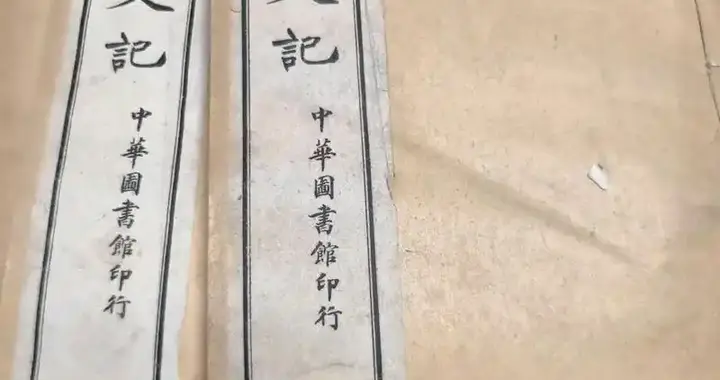 史記
中華圖書館印行
史記
中華圖書館印行